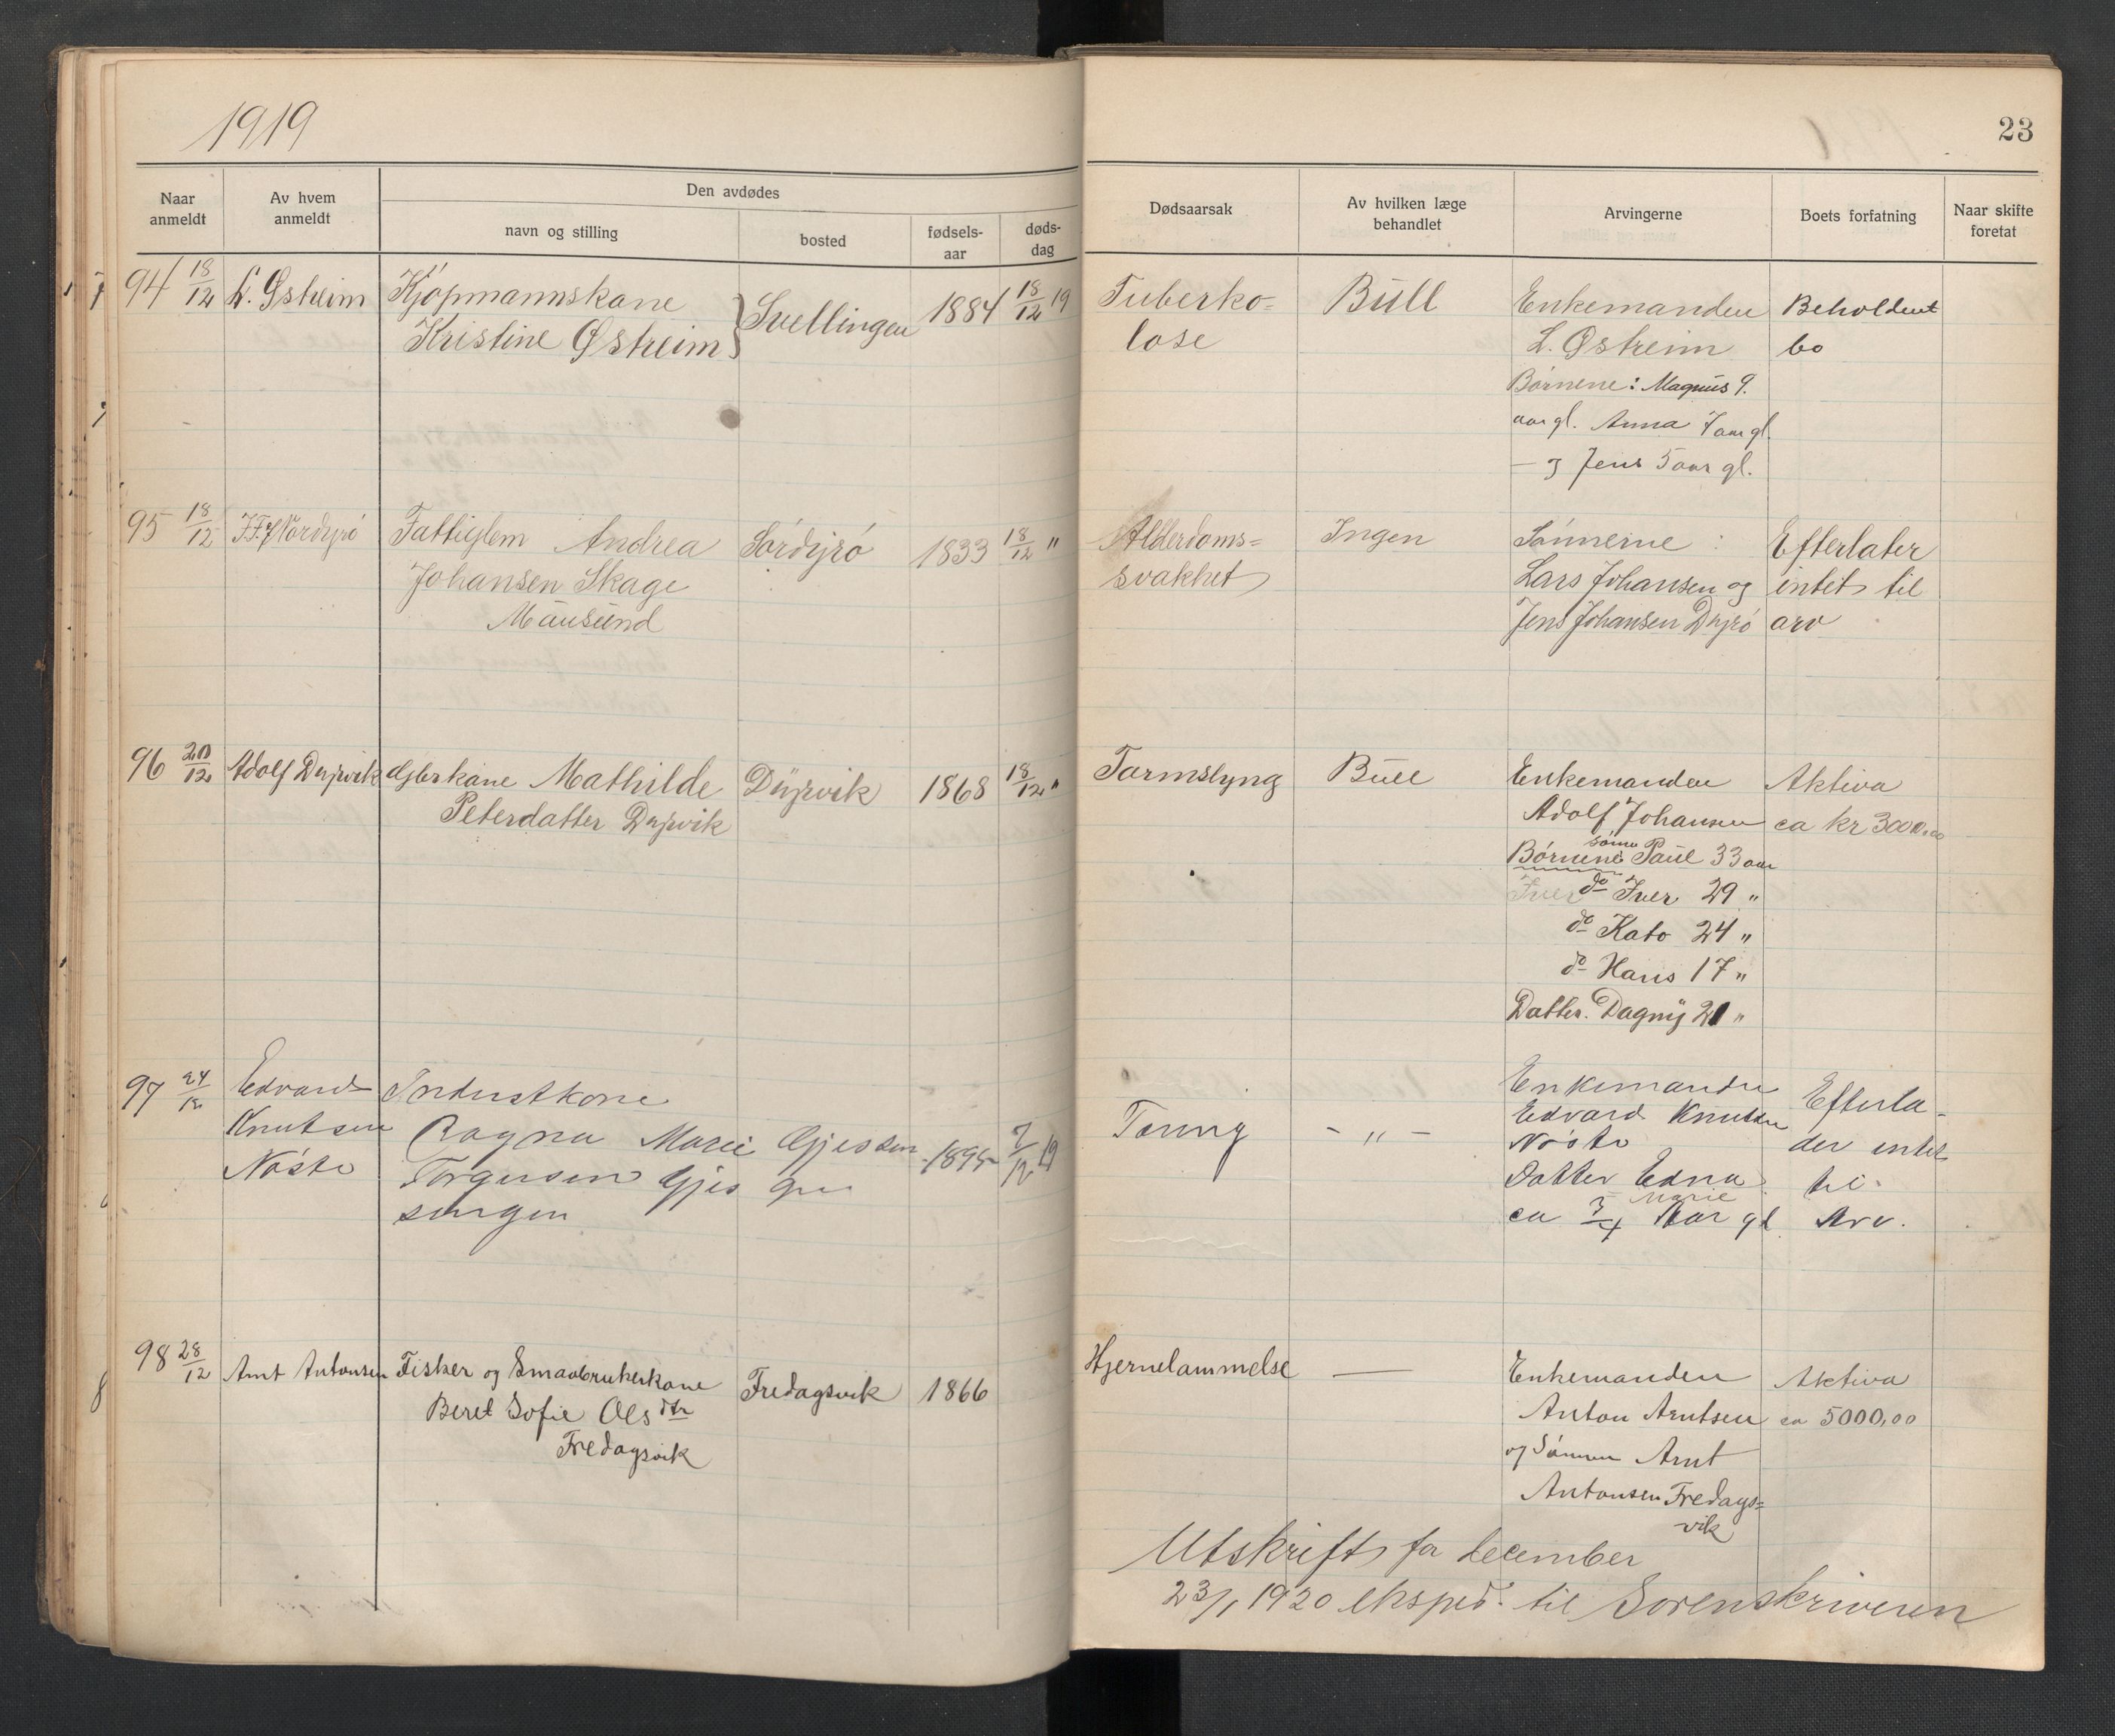 1919
23
Naar anmeldt
Av hvem anmeldt
Den avdødes
navn og stilling
bosted
fødsels-aar
døds-dag
Dødsaarsak
Av hvilken læge behandlet
Arvingerne
Boets forfatning
Naar skifte foretat
94 18/12 L. Østreim Kjøpmannskone Svellingen 1884 18/12 19 Tuberko= Büll Enkemanden Beholdent
Kristine Østreim lose L. Østreim bo
Børnene: Magnus 9.
aar gl. Anna 7 aar gl.
– og Jens 5 aar gl.
95 18/12 Nordyrö Fattiglem Andrea Sördyrö 1833 18/12 " Alderdoms= Ingen Sönnerne : Efterlater
Johansen Skage svakhet Lars Johansen og intet til
Mausund Jens Johansen Dyrö arv
96 20/12 Adolf Dyrvik Mathilde Dyrvik 1868 18/12 " Tarmslyng Büll Enkemanden Aktiva
Peterdatter Dyrvik Adolf Johansen ca kr 3000,00
Børnene: sönn Paul 33 aar
Iver do Iver 29 "
do Kato 24 "
do Hans 17 "
Datter. Dagny 21 "
97 24/12 Edvard Enkemanden
Knutsen Ragna Marie Gjessen 1895 7/12 19 Tæring – " – Edvard Knutsen Efterla-
Nøsta Torgersen Gjes Nøsta der intet
singen Datter Edna Marie til
ca 3/4 Aar gl. Arv.
98 28/12 Arnt Antonsen Fisker og Smaabrukerkone Fredagsvik 1866 Hjernelammelse — Enkemanden Aktiva
Beret Sofie Olsdtr Anton Arntsen ca 5000,00
Fredagsvik og Sönnen Arnt
Antonsen Fredags=
vik
Utskrift for december
23/1 1920 eksped. til Sorenskriveren